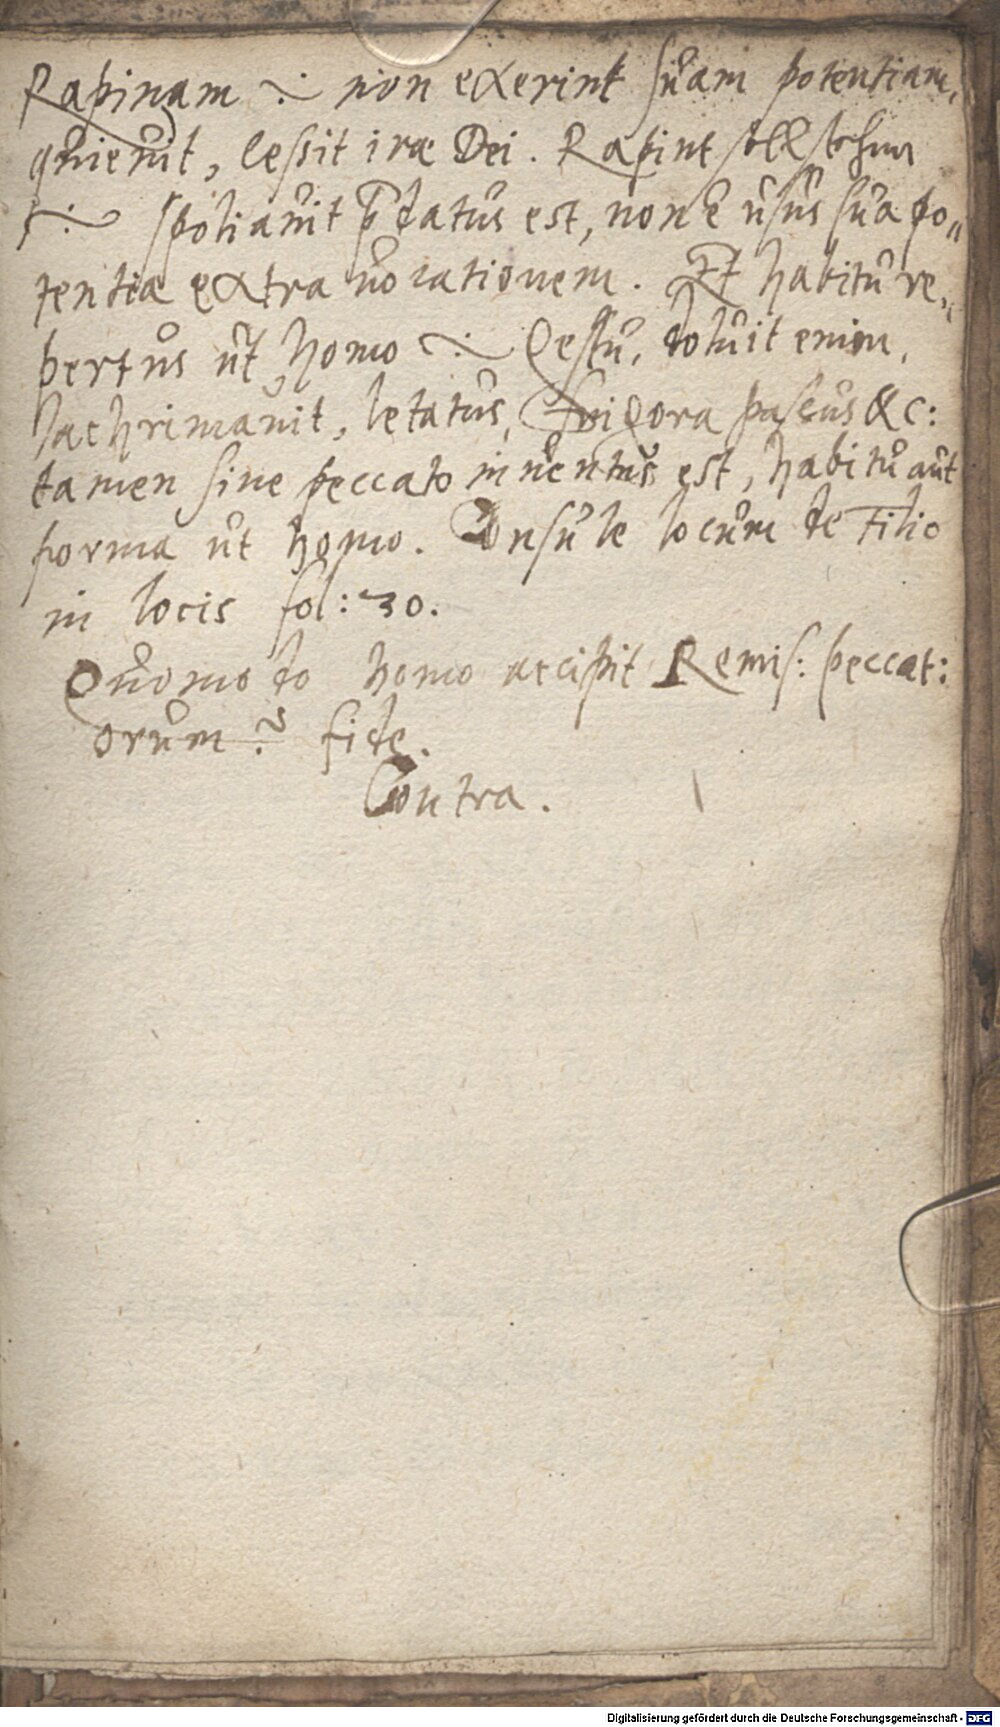 Rapinam ∻ non exerint suam potentiam,
quievit, cessit iræ Dei. Rapint
∻ spoliavit p̄datus est, non ē usus sua po„
tentia extra vocationem. Et habitu re„
pertus ut homo ∻ Gestu, doluit enim,
lachrimavit, letatus, frigora passus &c:
tamen sine peccato inventus est, habitu aut
forma ut homo. Consule locum de Filio
in locis fol: 30.
Quomodo homo accipit Remis: peccat:
orum? fide.
Contra.
Digitalisierung gefördert durch die Deutsche Forschungsgemeinschaft - DFG